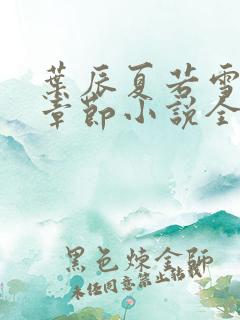 葉辰夏若雪
章節小說全
黑色煉金師
未经同意禁止转载